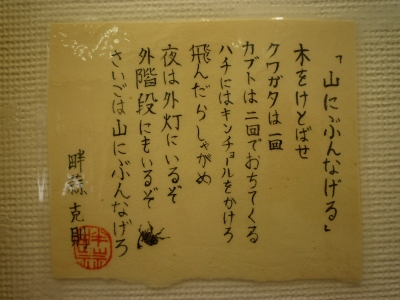 「山にぶんなげる」
木をけとばせ
クワガタは一回
カブトは二回でおちてくる
ハチにはキンチョールをかけろ
飛んだらしゃがめ
夜は外灯にいるぞ
外階段にもいるぞ
さいごは山にぶんなげろ
畔蒜克則